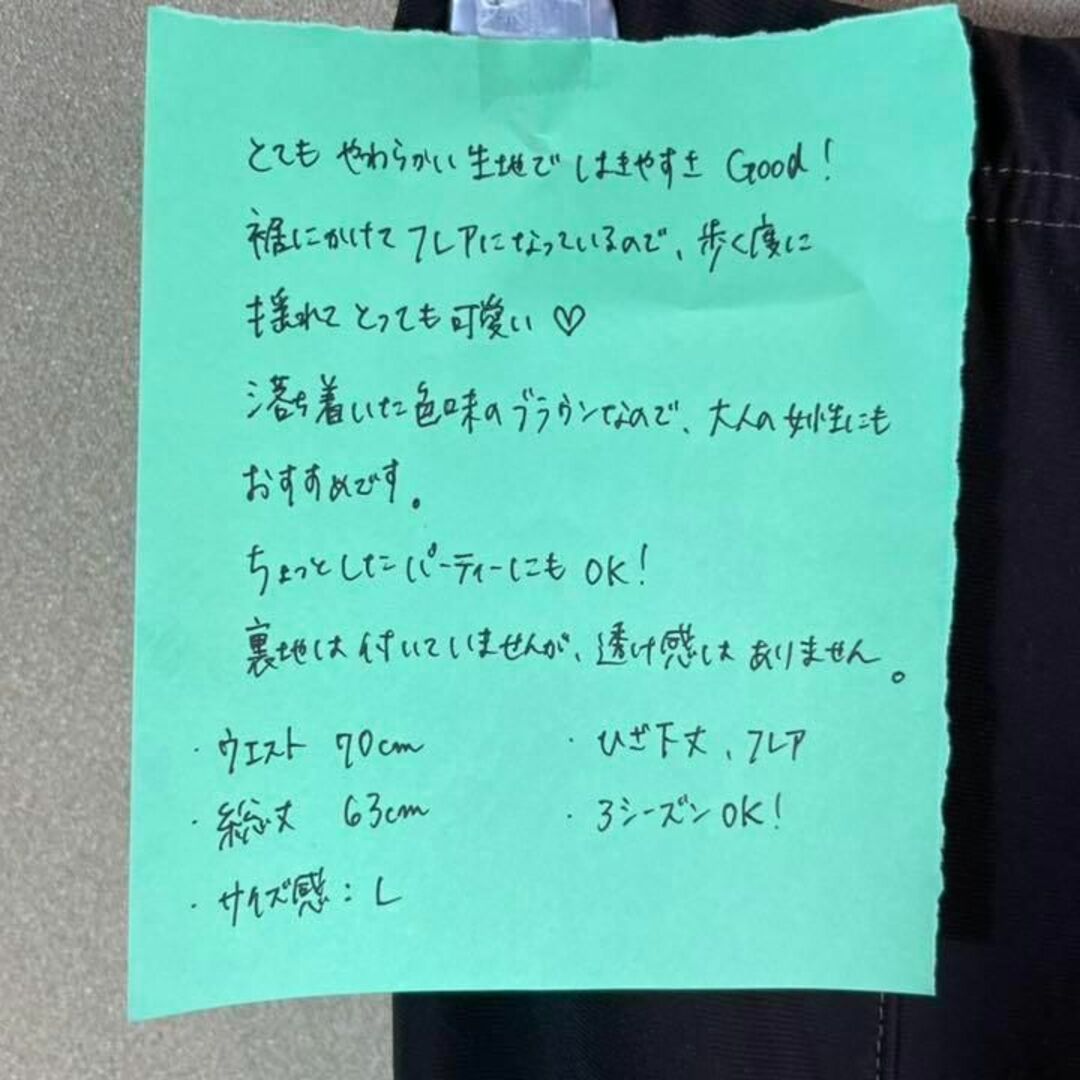 とても やわらかい生地で はきやすさ Good!
裾にかけて フレアになっているので、歩く度に
揺れて とっても可愛い♡
落ち着いた色味のブラウンなので、大人の女性にも
おすすめです。
ちょっとしたパーティーにも OK!
裏地は付いていませんが、透け感は ありません。
・ウエスト 70cm ・ひざ下丈、フレア
・総丈 63cm ・3シーズンOK!
・サイズ感:L